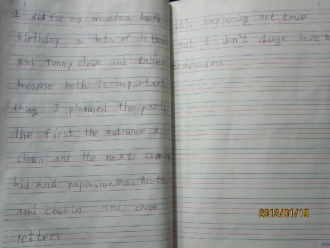 I did for my grandma 100th
Birthday a lots of letters
and funny clown and
because both is important
thing I planned the party
the first the entrance a
clown and the next coming
kid and papa, mama, brother
and cousin and came
letters
not true
but I don't change love
grandma
2012/01/19